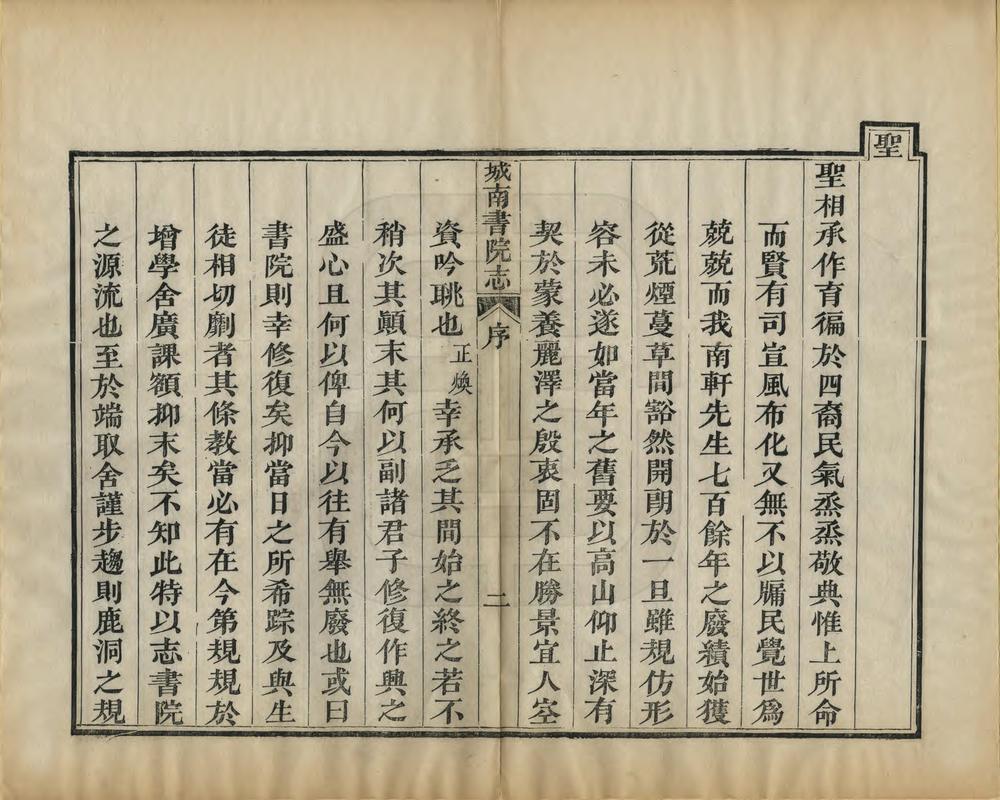 聖
聖相承作育徧於四裔民氣烝烝敬典惟上所命
而賢有司宣風布化又無不以牖民覺世爲
兢兢而我南軒先生七百餘年之廢績始獲
從荒煙蔓草間豁然開朗於一旦雖規仿形
容未必遂如當年之舊要以高山仰止深有
契於蒙養麗澤之殷衷固不在勝景宜人空
城南書院志 序 二
資吟眺也正煥幸承乏其間始之終之若不
稍次其顛末其何以副諸君子修復作興之
盛心且何以俾自今以往有舉無廢也或曰
書院則幸修復矣抑當日之所希踪及與生
徒相切劘者其條教當必有在今第規規於
增學舍廣課額抑末矣不知此特以志書院
之源流也至於端取舍謹步趨則鹿洞之規